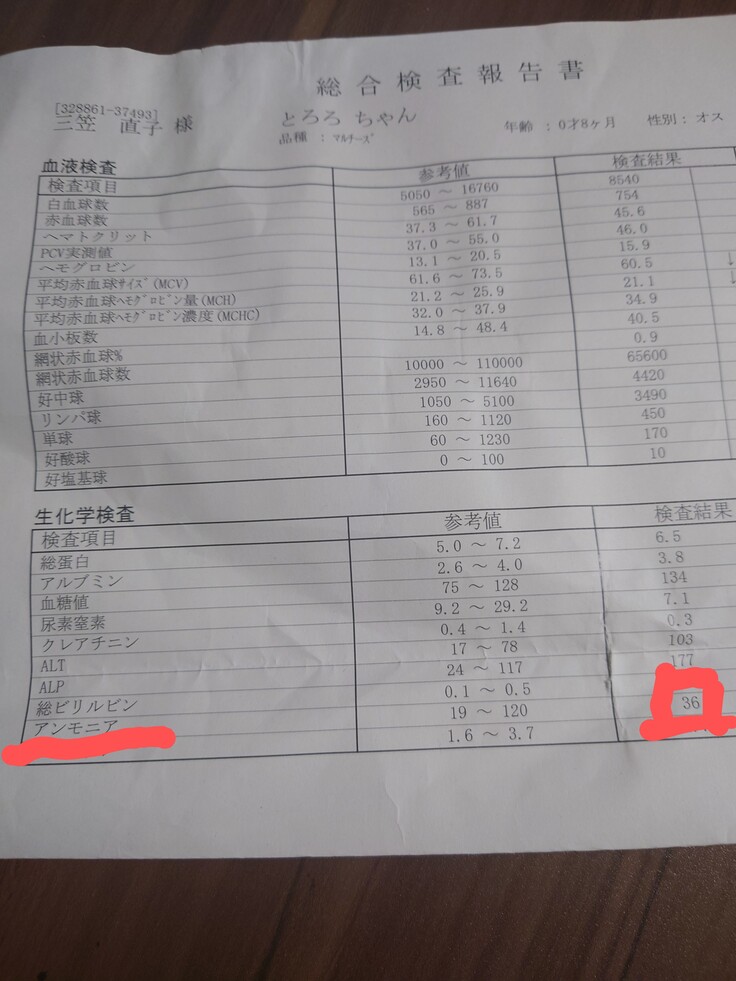 総合検査報告書
[328861-37493]
三笠 直子 様 とろろ ちゃん
品種 : マルチーズ 年齢 : 0才8ヶ月 性別: オス
血液検査
検査項目 参考値 検査結果
白血球数 5050 ～ 16760 8540
赤血球数 565 ～ 887 754
ヘマトクリット 37.3 ～ 61.7 45.6
PCV実測値 37.0 ～ 55.0 46.0
ヘモグロビン 13.1 ～ 20.5 15.9
平均赤血球サイズ(MCV) 61.6 ～ 73.5 60.5 ↓
平均赤血球ヘモグロビン量(MCH) 21.2 ～ 25.9 21.1 ↓
平均赤血球ヘモグロビン濃度(MCHC) 32.0 ～ 37.9 34.9
血小板数 14.8 ～ 48.4 40.5
網状赤血球% 0.9
網状赤血球数 10000 ～ 110000 65600
好中球 2950 ～ 11640 4420
リンパ球 1050 ～ 5100 3490
単球 160 ～ 1120 450
好酸球 60 ～ 1230 170
好塩基球 0 ～ 100 10
生化学検査
検査項目 参考値 検査結果
総蛋白 5.0 ～ 7.2 6.5
アルブミン 2.6 ～ 4.0 3.8
血糖値 75 ～ 128 134
尿素窒素 9.2 ～ 29.2 7.1
クレアチニン 0.4 ～ 1.4 0.3
ALT 17 ～ 78 103
ALP 24 ～ 117 177
総ビリルビン 0.1 ～ 0.5
アンモニア 19 ～ 120 36
1.6 ～ 3.7